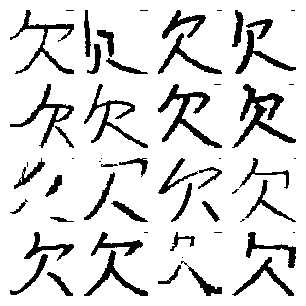 欠欠欠
欠欠欠欠
欠欠欠
欠欠欠